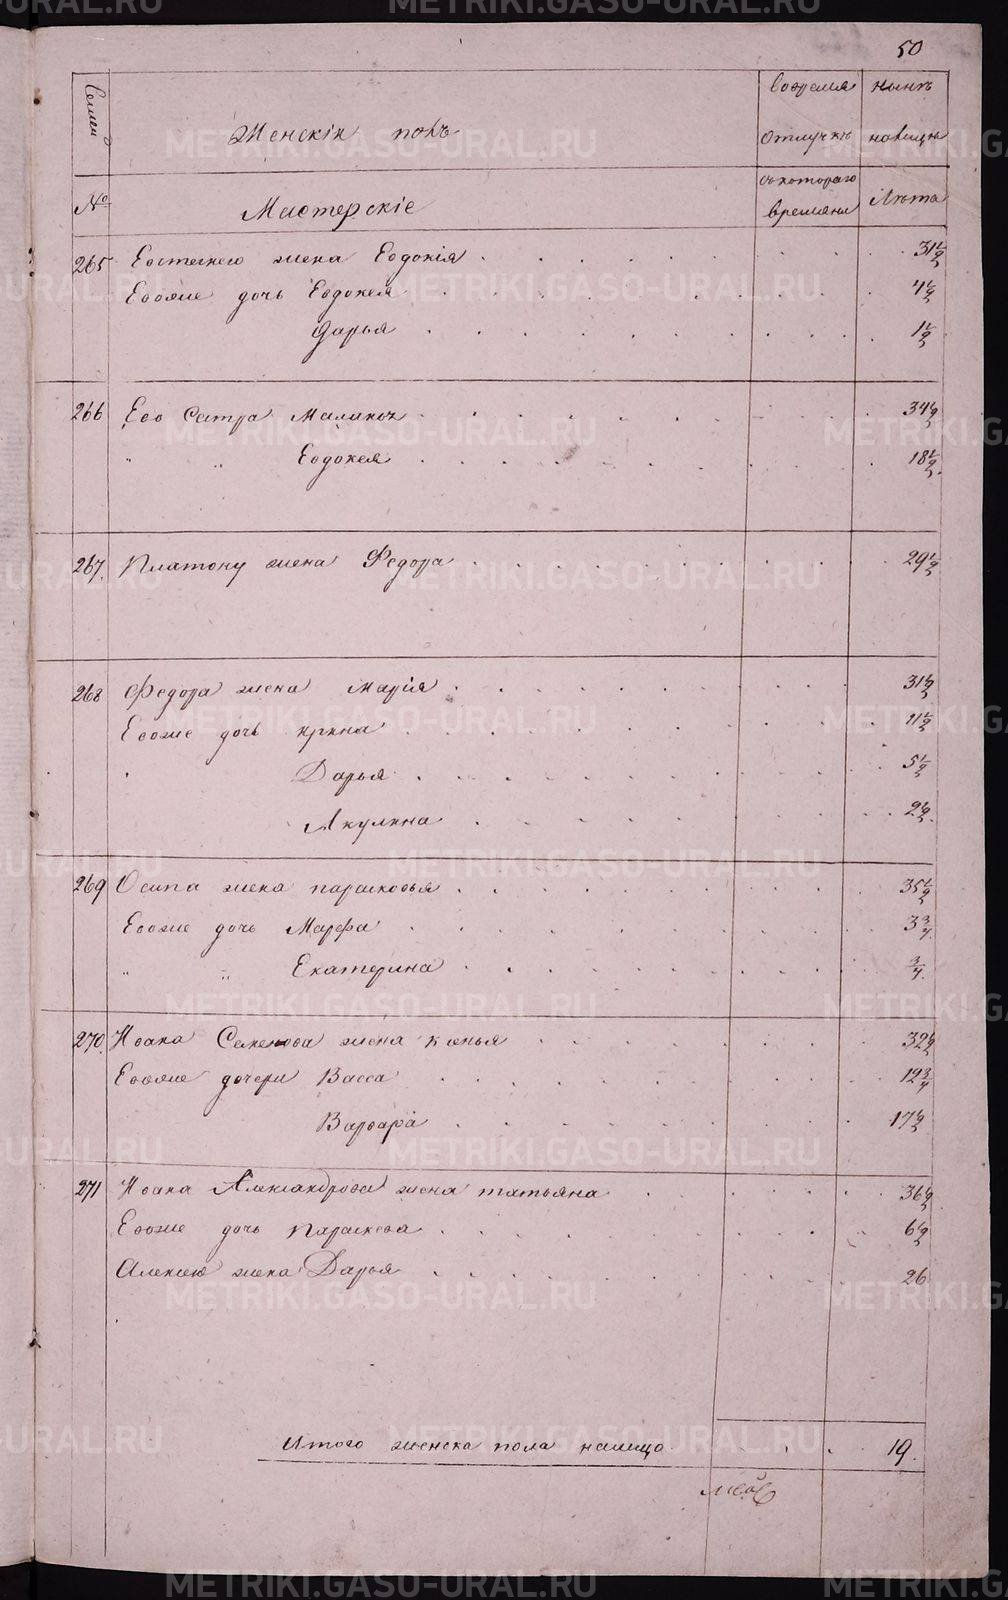 50
Семей
Женскій полъ
вовремя
отлучкѣ
нынѣ
налицѣ
№
Мастерскіе
съкотораго
времяни
лѣта
265 Евстегнею жена Евдокія 31½
Евоже дочь Евдокея 4½
Дарья 1½
266 Ево Сстра 34½
" " Евдокея 18½
267. Платону жена Федора 29½
268 Федора жена марія 31½
Евоже дочь ирина 11½
Дарья 5½
Акулина 2½
269 Осипа жена парасковья 35½
Евоже дочь Марфа 3¾
" " Екатерина ¾
270. Ивана Семенова жена 32½
Евоже дочери Васса 12¾
Варвара 17½
271 Ивана Александрова жена татьяна 36½
Евоже дочь Параскева 6½
Алексею жена Дарья 26
Итого женска пола налицо 19.
METRIKI.GASO-URAL.RU